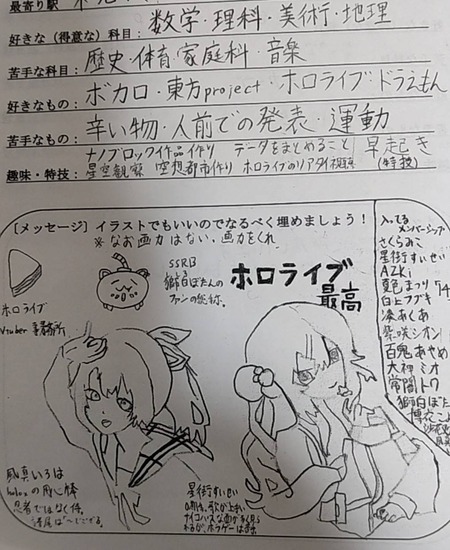 最寄り駅
好きな(得意な)科目: 数学・理科・美術・地理
苦手な科目: 歴史・体育・家庭科・音楽
好きなもの: ボカロ・東方project・ホロライブ・ドラえもん
苦手なもの: 辛い物・人前での発表・運動
ナノブロック作品作り データをまとめること 早起き
趣味・特技: 星空観察 空想都市作り ホロライブのリアタイ視聴 (特技)
[メッセージ] イラストでもいいのでなるべく埋めましょう!
※なお画力はない、画力をくれ
SSRB
獅白ぼたんの
ファンの総称。
ホロライブ
最高
ホロライブ
Vtuber 事務所
入ってる
メンバーシップ
さくらみこ
星街すいせい
AZKi
夏色まつり
白上フブキ
湊あくあ
紫咲シオン
百鬼あやめ
大神ミオ
常闇トワ
獅白ぼた
博衣こよ
風真いろは
holoxの用心棒
忍者ではなく侍。
語尾は〜でござる。
星街すいせい